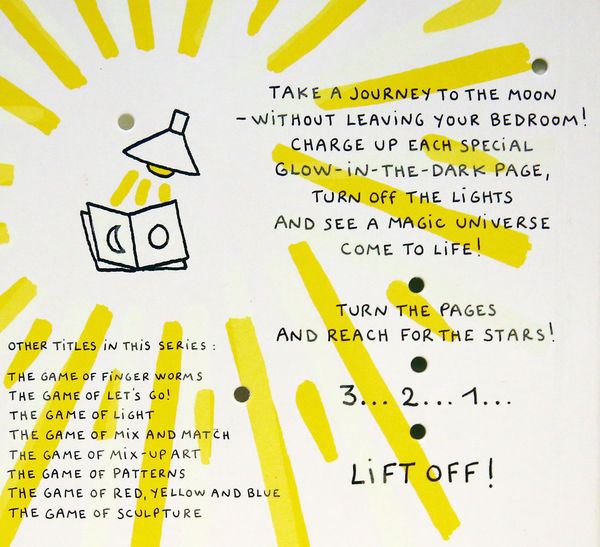 TAKE A JOURNEY TO THE MOON
- WITHOUT LEAVING YOUR BEDROOM!
CHARGE UP EACH SPECIAL
GLOW-IN-THE-DARK PAGE,
TURN OFF THE LIGHTS
AND SEE A MAGIC UNIVERSE
COME TO LIFE!
TURN THE PAGES
AND REACH FOR THE STARS!
3... 2... 1...
LIFT OFF!
OTHER TITLES IN THIS SERIES:
THE GAME OF FINGER WORMS
THE GAME OF LET'S GO!
THE GAME OF LIGHT
THE GAME OF MIX AND MATCH
THE GAME OF MIX-UP ART
THE GAME OF PATTERNS
THE GAME OF RED, YELLOW AND BLUE
THE GAME OF SCULPTURE